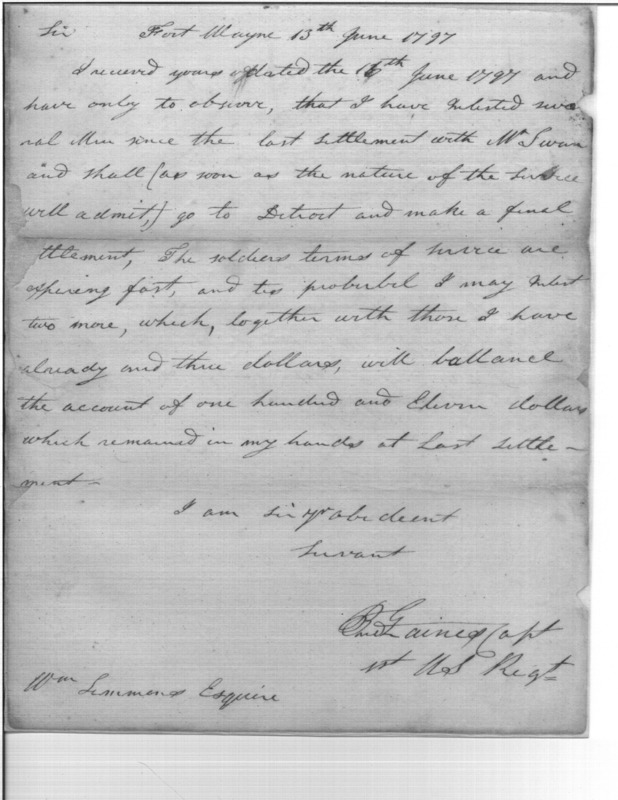 Sir Fort Wayne 13th June 1797
I receved yours dated the 16th June 1797 and
have only to observe, that I have Inlisted seve
ral Men since the last settlement with Mr Swan
and shall (as soon as the nature of the Service
will admit,) go to Detroit and make a final
ttlement, The soldiers terms of service are
expiering fast, and tis proberbel I may Inlist
two more, which, together with those I have
already and three dollars, will ballance
the account of one hundred and Eleven dollars
which remained in my hands at Last settle-
ment-
I am Sir yr obedeent
Servant
Gaines Capt
1st US Regt
Wm Simmons Esquire